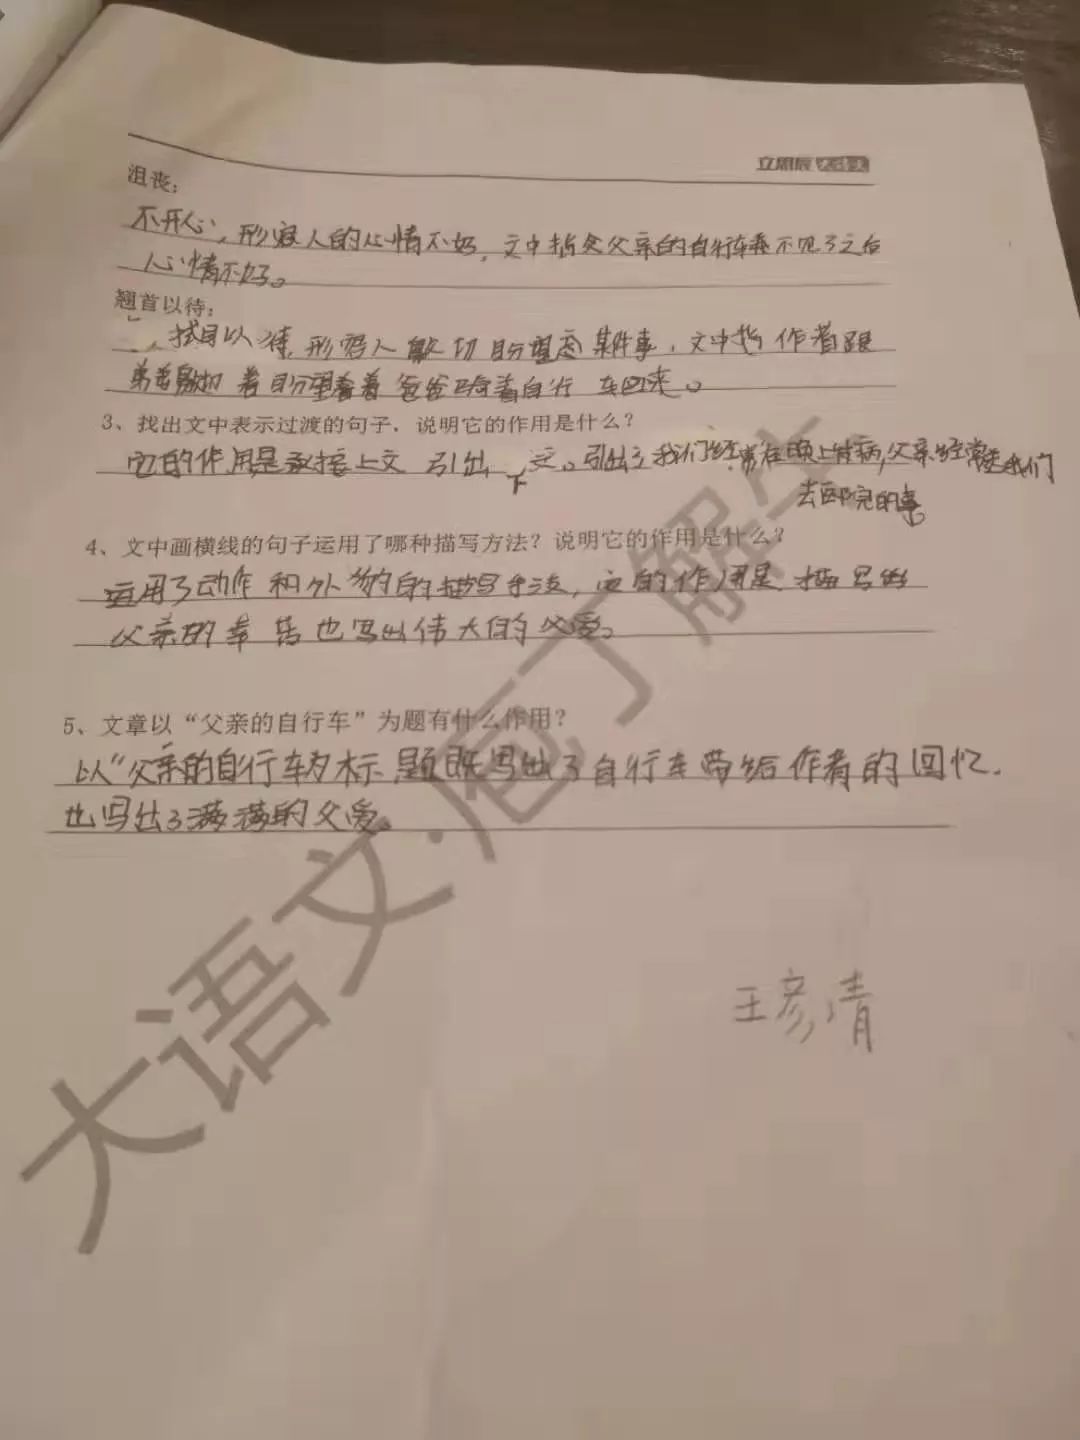 立思辰大语文
沮丧：
不开心，形容人的心情不好，文中指父亲的自行车不见了之后
心情不好。
翘首以待：
，拭目以待，形容人 切盼望 某件事，文中指 作者跟
弟弟 切 着盼望着 爸爸骑着自行 车回来。
3、找出文中表示过渡的句子，说明它的作用是什么？
它的作用是承接上文 引出下文。引出了我们经常在晚上生病，父亲经常 我们
去医院的事
4、文中画横线的句子运用了哪种描写方法？说明它的作用是什么？
运用了动作和外貌的描写手法，它的作用是 描写出
父亲的辛苦也写出伟大的父爱。
5、文章以“父亲的自行车”为题有什么作用？
以“父亲的自行车为标题既写出了自行车带给作者的回忆，
也写出了满满的父爱。
王彦清
大语文·庖丁解牛